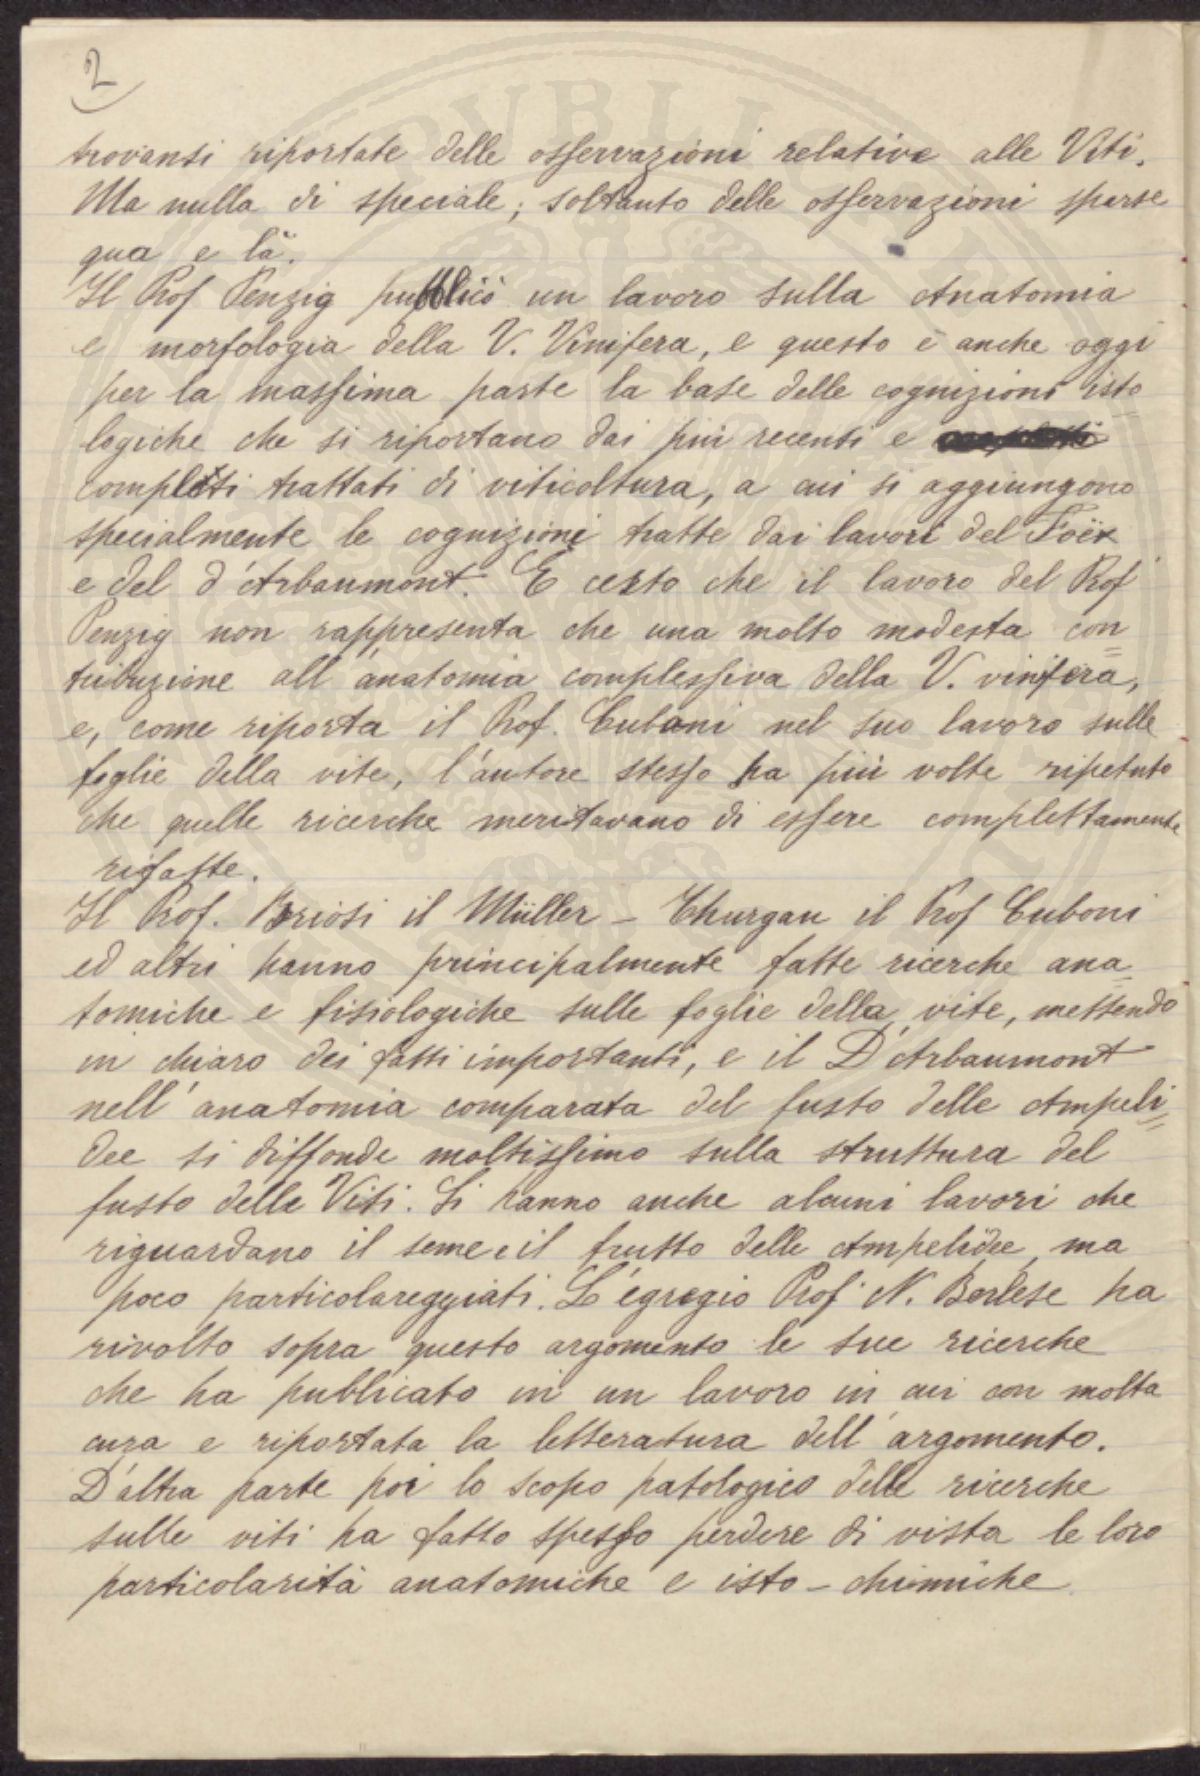 2
trovansi riportate delle osservazioni relative alle Viti.
Ma nulla di speciale; soltanto delle osservazioni sparse
qua e là.
Il Prof Penzig pubblicò un lavoro sulla Anatomia
e morfologia della V. Vinifera, e questo è anche oggi
per la massima parte la base delle cognizioni isto
logiche che si riportano dai più recenti e
completi trattati di viticoltura, a cui si aggiungono
specialmente le cognizioni tratte dai lavori del Foëx
e del d'Arbaumont. E certo che il lavoro del Prof
Penzig non rappresenta che una molto modesta con=
tribuzione all'anatomia complessiva della V. vinifera,
e, come riporta il Prof. Cuboni nel suo lavoro sulle
foglie della vite, l'autore stesso ha più volte ripetuto
che quelle ricerche meritavano di essere complettamente
rifatte.
Il Prof. Briosi il Müller - Thurgau il Prof Cuboni
ed altri hanno principalmente fatte ricerche ana=
tomiche e fisiologiche sulle foglie della vite, mettendo
in chiaro dei fatti importanti, e il D'Arbaumont
nell'anatomia comparata del fusto delle Ampeli=
dee si diffonde moltissimo sulla struttura del
fusto delle Viti. Si hanno anche alcuni lavori che
riguardano il seme e il frutto delle Ampelidee, ma
poco particolareggiati. L'egregio Prof N. Berlese ha
rivolto sopra questo argomento le sue ricerche
che ha publicato in un lavoro in cui con molta
cura e riportata la letteratura dell'argomento.
D'altra parte poi lo scopo patologico delle ricerche
sulle viti ha fatto spesso perdere di vista le loro
particolarità anatomiche e isto-chimiche